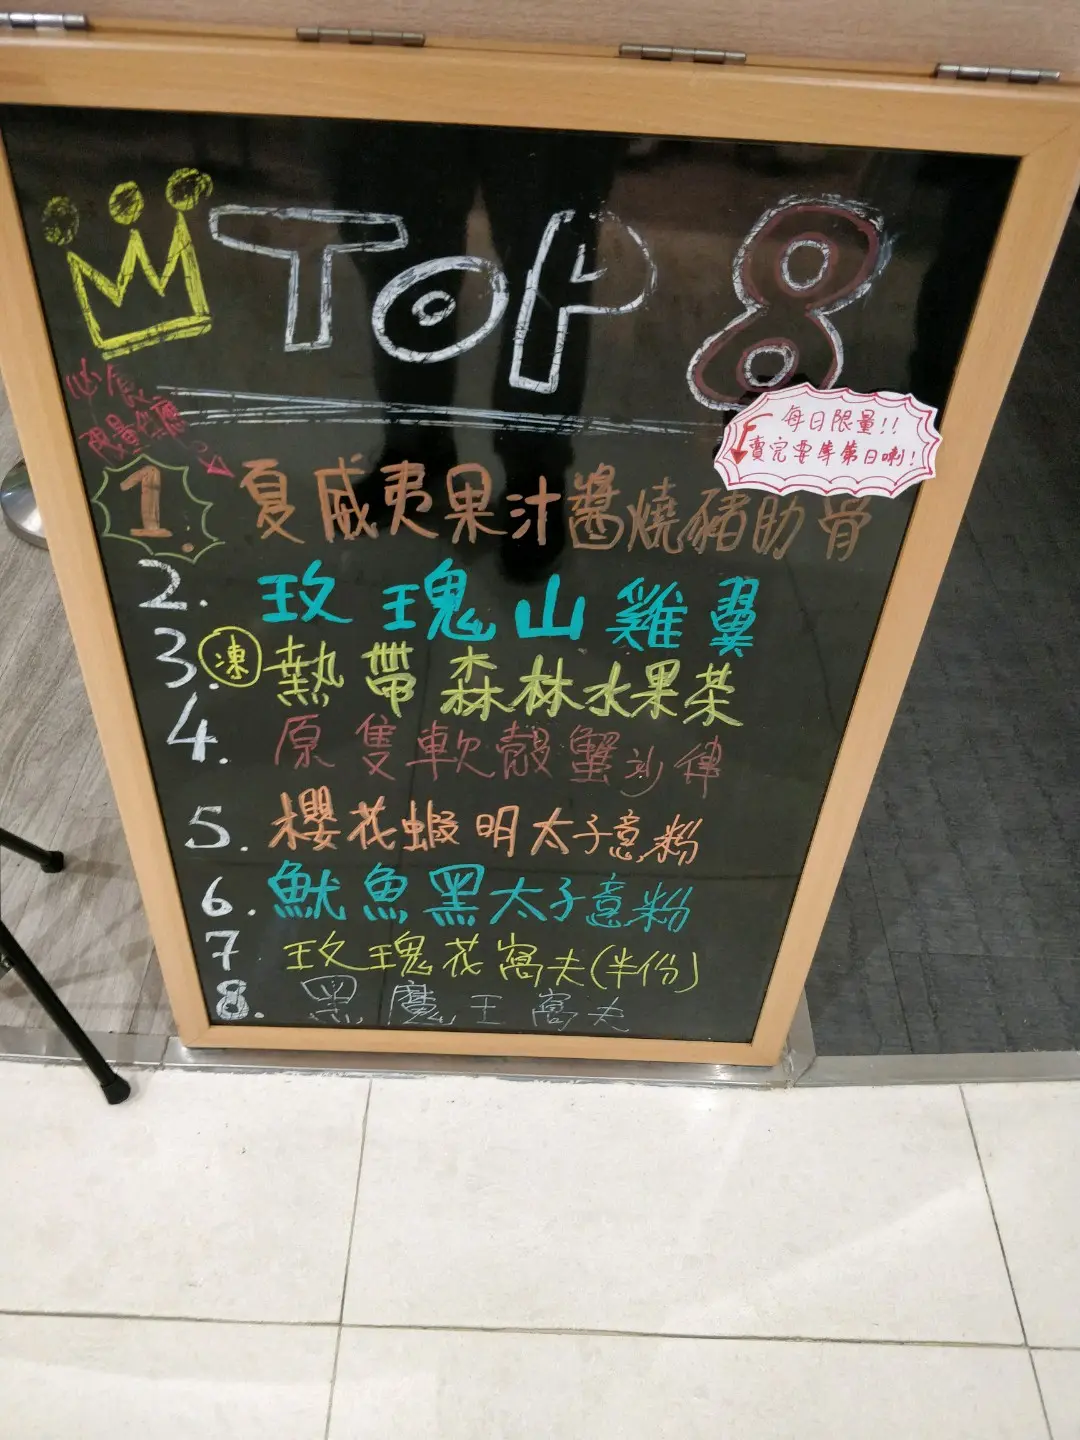 TOP 8
必食
限量供應
每日限量!!
賣完要等第日喇!
1. 夏威夷果汁醬燒豬肋骨
2. 玫瑰山雞翼
3. 凍 熱帶森林水果茶
4. 原隻軟殼蟹沙律
5. 櫻花蝦明太子意粉
6. 魷魚黑太子意粉
7 玫瑰花窩夫(半份)
8. 黑魔王窩夫